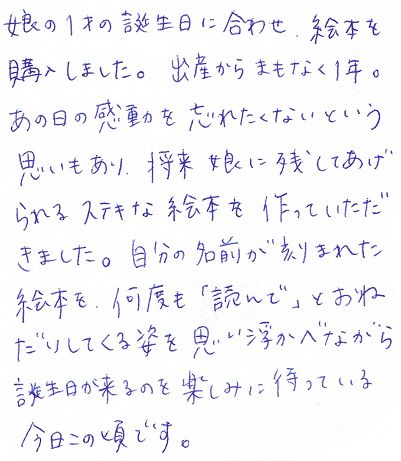 娘の1才の誕生日に合わせ、絵本を
購入しました。出産からまもなく1年。
あの日の感動を忘れたくないという
思いもあり、将来娘に残してあげ
られるステキな絵本を作っていただ
きました。自分の名前が刻まれた
絵本を、何度も「読んで」とおね
だりしてくる姿を思い浮かべながら
誕生日が来るのを楽しみに待っている
今日この頃です。